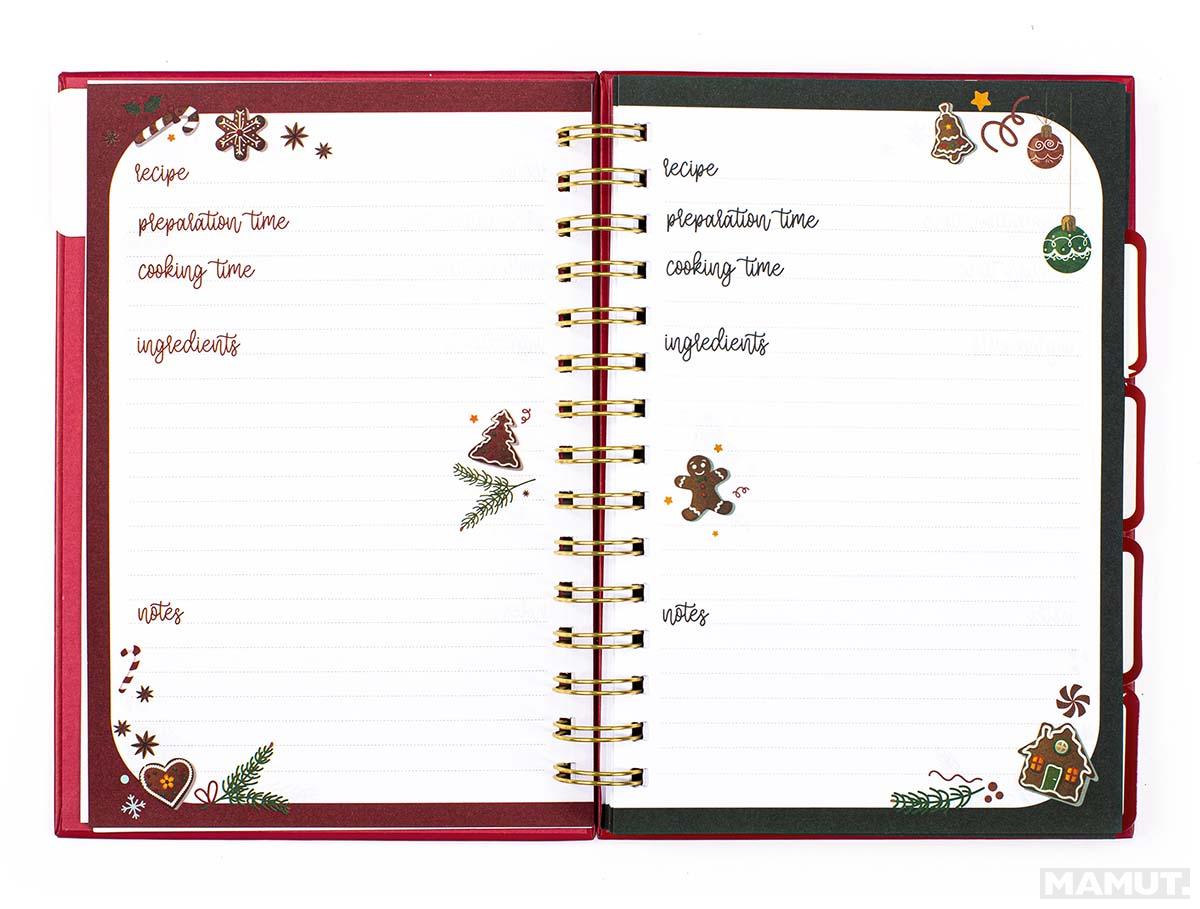 recipe
preparation time
cooking time
ingredients
notes
recipe
preparation time
cooking time
ingredients
notes
MAMUT.